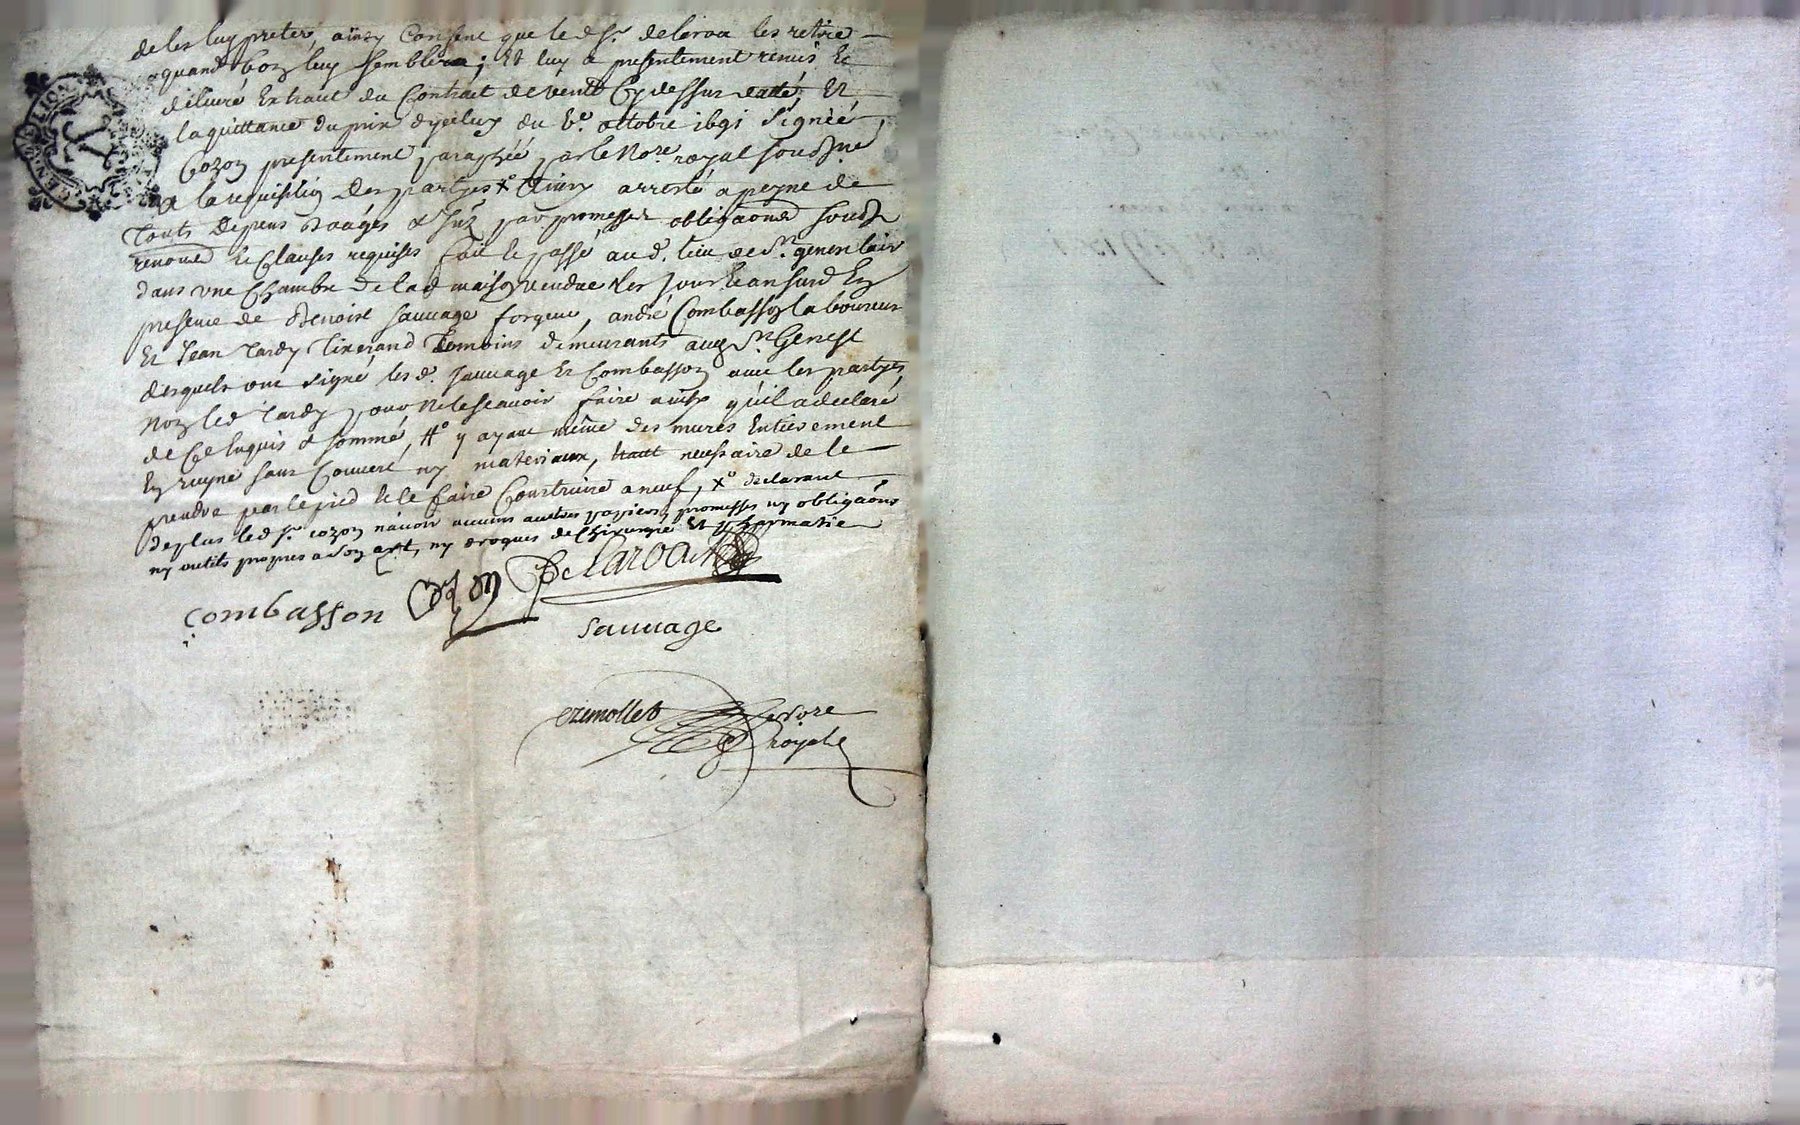 de les luy preter ainsy Consent que le d Sr. delaroa les retire
quand bon luy semblera; Et luy a presentement remis Et
délivré Extrait du Contract de vente Cy dessus datté, Et
la quittance du prix d'yceluy du Ve. octobre 1691 Signéé
Cozon presentement paraphéé par le Nore. royal soubsne
a la requisition des partyes xo Ainsy arresté a peyne de
touts depens par promesses obligaons soubs
renoned Et Clauses requises fait Et passé au d. lieu de St. genest
dans une Chambre de la d maison vendue les jour Et an susd En
presence de Benoist Sauvage forgeur, andré Combasson laboureur
Et Jean Tardy Tixerand Temoins demeurants aud St Genest
desquels ont signé les d. Sauvage Et Combasson avec les partyes
Non led Tardy pour ne le scavoir faire ainsy qu'il a declaré
de Ce Enquis & sommé, #o y ayant même des mures Entierement
En ruyne sans Couvert ny materiaux, necessaire de le
prendre par le pied Et le faire Construire a neuf, xo declarant
de plus led Sr. cozon n'avoir aucuns autres papiers, promesses ny obligaons
ny outils propres a son art, ny drogues de Chirurgie Et pharmatie
Combasson Cozon Delaroa
Sauvage
Nore
royal